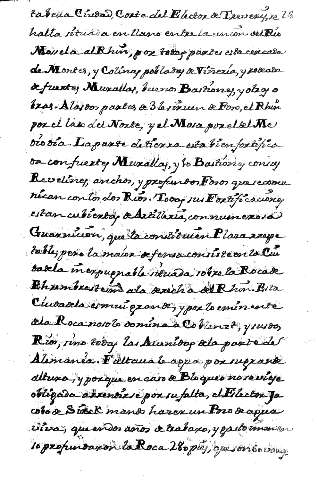 ta bella Ciudad, Corte del Elector de Treveris, se 28
halla situada en llano entre la union del Rio
Mosela al Rhin, por todas partes esta cercada
de Montes, y Colinas pobladas de Viñeria, y rodeada
de fuertes Murallas, buenos Bastiones, y otras o
bras. A las dos partes de ella sirven de Foso, el Rhin
por el lado del Norte, y el Mosa por el del Me
dio dia. La parte de tierra esta bien fortifica
da con fuertes Murallas, y Bastiones con sus
Revelines, anchos, y profundos Fosos que se comu
nican con los dos Rios. Todas sus Fortificaciones
estan cubiertas de Artilleria, con numerosa
Guarnicion, que la constituien Plaza respe
table; pero la maior defensa consiste en la Ciu
dadela inexpugnable situada sobre la Roca de
a la derecha del Rhin. Esta
Ciudadela es mui grande, y por lo eminente
de la Roca no solo domina a Coblenz, y sus dos
Rios, sino todas las Avenidas de la parte de
Alemania. Faltava la agua por su grande
altura, y porque en caso de Bloqueo no se viese
obligada a rendirse por su falta, el Elector Ja
cobo de mandó hacer un Poso de agua
viva, que en dos años de trabaxo, y gasto
se profundaron la Roca 280 pies, que